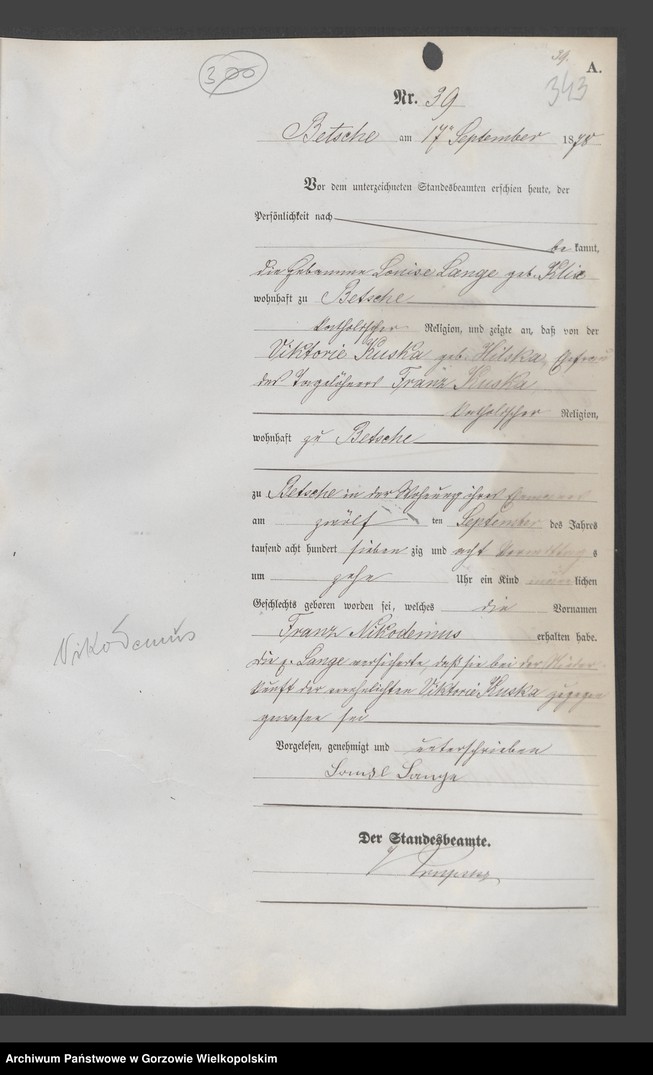 39.
A.
300
343
Nr. 39
Betsche am 17n September 1878
Vor dem unterzeichneten Standesbeamten erschien heute, der
Persönlichkeit nach
be kannt,
die Hebamme Louise Lange geb. Klix
wohnhaft zu Betsche
katholischer Religion, und zeigte an, daß von der
Viktorie Kuska geb. Hilska, Ehefrau
des Tagelöhners Franz Kuska
katholischer Religion,
wohnhaft zu Betsche
zu Betsche in der Wohnung ihres Ehemannes
am zwölf ten September des Jahres
tausend acht hundert sieben zig und acht Vormittag s
um zehn Uhr ein Kind männ lichen
Geschlechts geboren worden sei, welches die Vornamen
Franz Nikodemus erhalten habe.
Die p. Lange versicherte, daß sie bei der Nieder-
kunft der verehelichten Viktorie Kuska zugegen
gewesen sei
Nikodemus
Vorgelesen, genehmigt und unterschrieben
Lange
Der Standesbeamte.
Archiwum Państwowe w Gorzowie Wielkopolskim